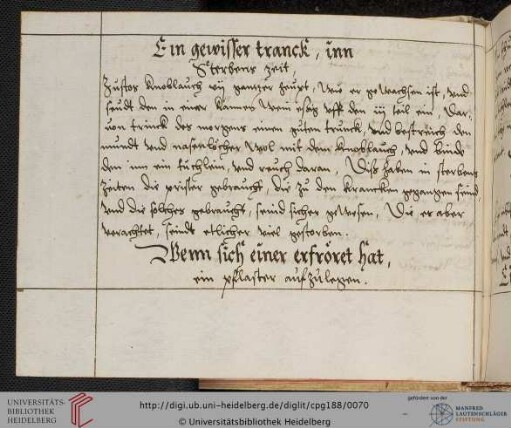 Ein gewisser tranck, inn
Sterbens zeit,
Zustos Knoblauch vij gantzer heupt, wie er gewachsen ist, vnd
seudt den in einer kannes wein eßig vff den iij teil ein, Dar-
von trinck des morgens einen guten trunck, vnd bestreich den
mundt vnd naßenlöcher wol mit dem knoblauch, vnd bindt
den inn ein tüchlein, vnd reuch daran, Diß haben in sterbens
zeiten die prister gebraucht, die zu den krancken gegangen seind,
vnd die solches gebraucht, seind sicher gewesen, Die er aber
verachtet, seindt etlicher viel gestorben.
Wenn sich einer erfröret hat,
ein pflaster auf zu legen.
UNIVERSITÄTS-
BIBLIOTHEK
HEIDELBERG
http://digi.ub.uni-heidelberg.de/diglit/cpg188/0070
© Universitätsbibliothek Heidelberg
gefördert von der
MANFRED
LAUTENSCHLÄGER
STIFTUNG